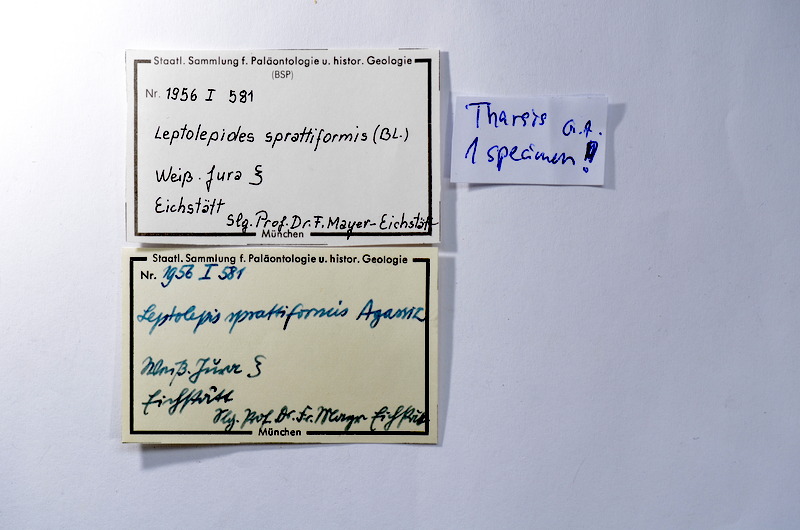 Staatl. Sammlung f. Paläontologie u. histor. Geologie
(BSP)
Nr. 1956 I 581
Leptolepides sprattiformis (BL.)
Weiß. Jura ξ
Eichstätt
Slg. Prof. Dr. F. Mayer-Eichstätt
München
Staatl. Sammlung f. Paläontologie u. histor. Geologie
Nr. 1956 I 581
Leptolepis sprattiformis Agassiz
Weiß. Jura ξ
Eichstätt
Slg. Prof. Dr. Fr. Mayr Eichstätt
München
Tharsis
1 specimen!